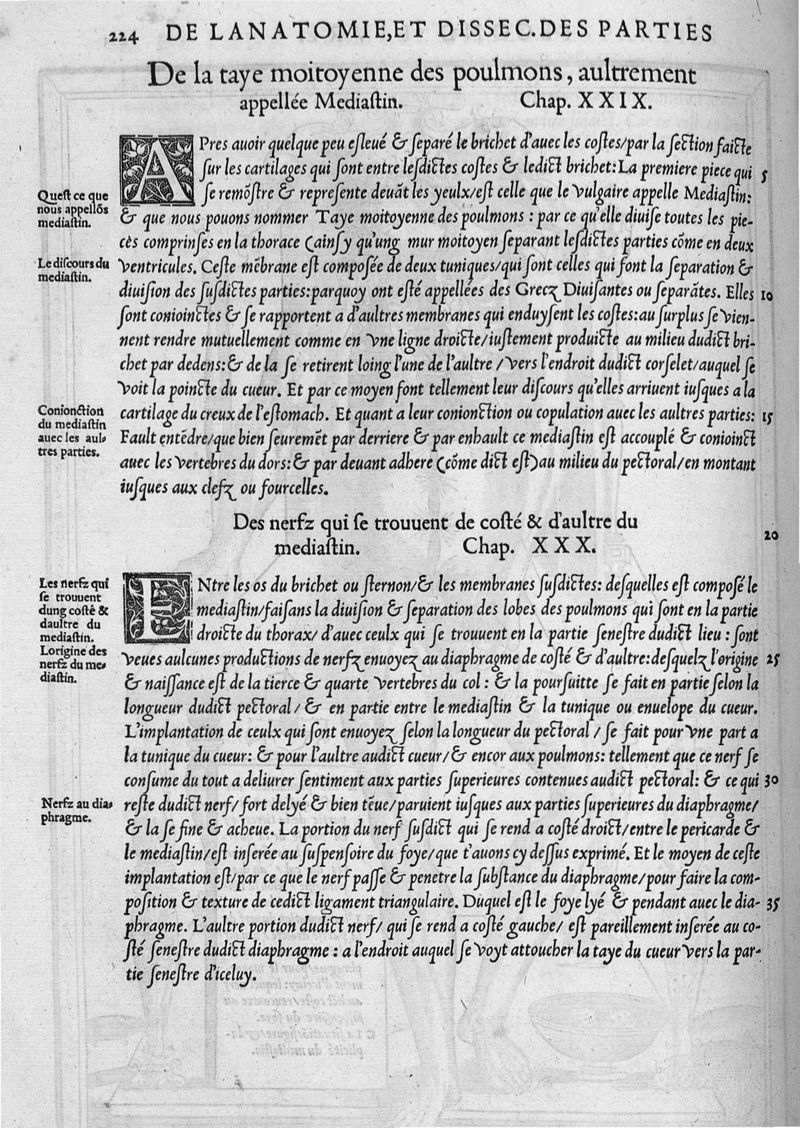 224 DE LANATOMIE, ET DISSEC. DES PARTIES
De la taye moitoyenne des poulmons, aultrement
appellée Mediaſtin. Chap. XXIX.
APres auoir quelque peu eſleué & ſeparé le brichet d'auec les coſtes/par la ſection faicte
ſur les cartilages qui ſont entre leſdictes coſtes & ledict brichet: La premiere piece qui 5
Queſt ce que
nous appellõs
mediaſtin.
ſe remõſtre & repreſente deuãt les yeulx/eſt celle que le vulgaire appelle Mediaſtin:
& que nous pouons nommer Taye moitoyenne des poulmons : par ce qu'elle diuiſe toutes les pie-
cès comprinſes en la thorace (ainſy qu'ung mur moitoyen ſeparant leſdictes parties cõme en deux
Le diſcours du
mediaſtin.
ventricules. Ceſte mẽbrane eſt compoſée de deux tuniques/qui ſont celles qui font la ſeparation &
diuiſion des ſuſdictes parties: parquoy ont eſté appellées des Grecz Diuiſantes ou ſeparãtes. Elles 10
ſont conioinctes & ſe rapportent a d'aultres membranes qui enduyſent les coſtes: au ſurplus ſe vien-
nent rendre mutuellement comme en vne ligne droicte/iuſtement produicte au milieu dudict bri-
chet par dedens: & de la ſe retirent loing l'une de l'aultre / vers l'endroit dudict corſelet/auquel ſe
voit la poincte du cueur. Et par ce moyen font tellement leur diſcours qu'elles arriuent iuſques a la
Conionction
du mediaſtin
auec les aul-
tres parties.
cartilage du creux de l'eſtomach. Et quant a leur conionction ou copulation auec les aultres parties: 15
Fault entẽdre/que bien ſeuremẽt par derriere & par enhault ce mediaſtin eſt accouplé & conioinct
auec les vertebres du dors: & par deuant adhere (cõme dict eſt) au milieu du pectoral/en montant
iuſques aux clefz ou fourcelles.
Des nerfz qui ſe trouuent de coſté & d'aultre du 20
mediaſtin. Chap. XXX.
Les nerfz qui
ſe trouuent
dung coſté &
daultre du
mediaſtin.
Lorigine des
nerfz du me-
diaſtin.
ENtre les os du brichet ou ſternon/& les membranes ſuſdictes: deſquelles eſt compoſé le
mediaſtin/faiſans la diuiſion & ſeparation des lobes des poulmons qui ſont en la partie
droicte du thorax/ d'auec ceulx qui ſe trouuent en la partie ſeneſtre dudict lieu : ſont
veues aulcunes productions de nerfz enuoyez au diaphragme de coſté & d'aultre: deſquelz l'origine 25
& naiſſance eſt de la tierce & quarte vertebres du col : & la pourſuitte ſe fait en partie ſelon la
longueur dudict pectoral / & en partie entre le mediaſtin & la tunique ou enuelope du cueur.
L'implantation de ceulx qui ſont enuoyez ſelon la longueur du pectoral / ſe fait pour vne part a
la tunique du cueur: & pour l'aultre audict cueur/& encor aux poulmons: tellement que ce nerf ſe
conſume du tout a deliurer ſentiment aux parties ſuperieures contenues audict pectoral: & ce qui 30
Nerfz au dia-
phragme.
reſte dudict nerf/ fort delyé & bien tẽue/paruient iuſques aux parties ſuperieures du diaphragme/
& la ſe fine & acheue. La portion du nerf ſuſdict qui ſe rend a coſté droict/entre le pericarde &
le mediaſtin/eſt inſerée au ſuſpenſoire du foye/que t'auons cy deſſus exprimé. Et le moyen de ceſte
implantation eſt/par ce que le nerf paſſe & penetre la ſubſtance du diaphragme/pour faire la com-
poſition & texture de cedict ligament triangulaire. Duquel eſt le foye lyé & pendant auec le dia- 35
phragme. L'aultre portion dudict nerf/ qui ſe rend a coſté gauche/ eſt pareillement inſerée au co-
ſté ſeneſtre dudict diaphragme : a l'endroit auquel ſe voyt attoucher la taye du cueur vers la par-
tie ſeneſtre d'iceluy.